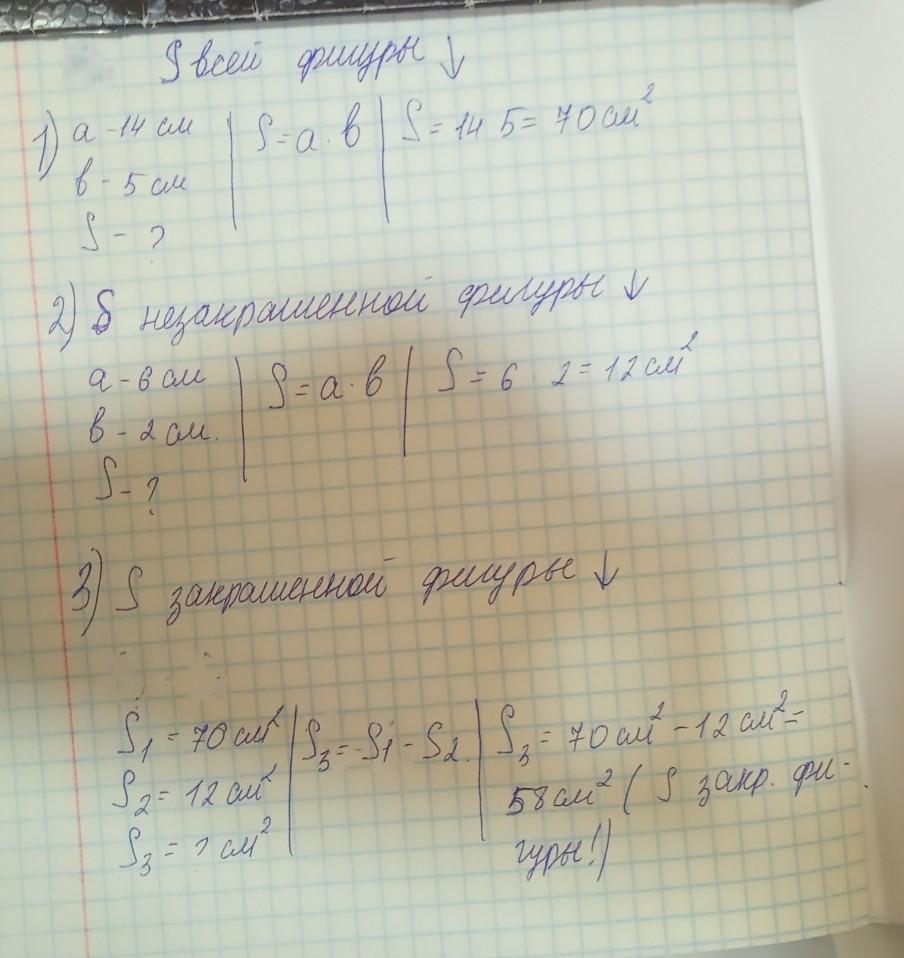 S всей фигуры ↓
1) a - 14 см | S = a · в | S = 14 5 = 70 см²
в - 5 см
S - ?
2) S незакрашенной фигуры ↓
a - 6 см | S = a · в | S = 6 · 2 = 12 см²
в - 2 см.
S - ?
3) S закрашенной фигуры ↓
S₁ = 70 см² | S₃ = S₁ - S₂. | S₃ = 70 см² - 12 см² =
S₂ = 12 см² | 58 см² ( S закр. фи-
S₃ = ? см² | гуры!)